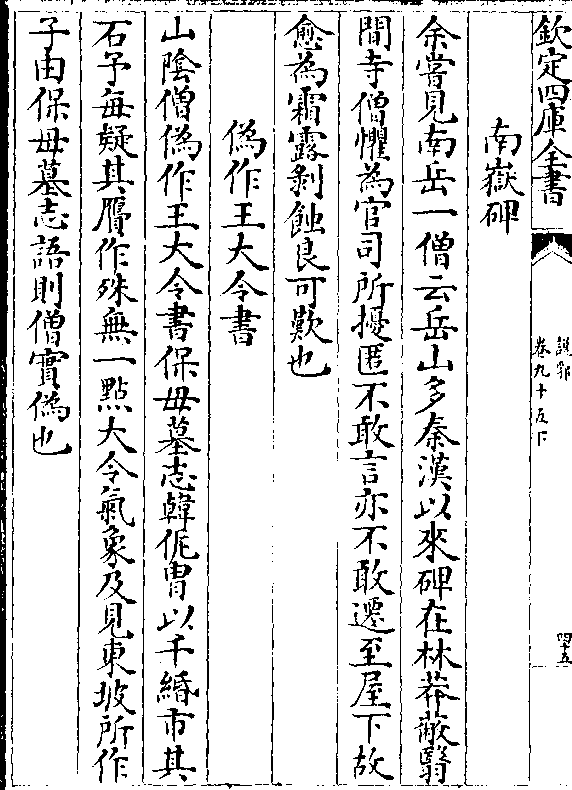 欽定四庫全書
說郛
卷九十五下
四十五
南嶽碑
余嘗見南岳一僧云岳山多秦漢以來碑在林莽蔽翳
間寺僧懼為官司所擾匿不敢言亦不敢遷至屋下故
愈為霜露剥蝕良可歎也
偽作王大令書
山陰僧偽作王大令書保母墓志韓侂胄以千緡市其
石予每疑其贗作殊無一點大令氣象及見東坡所作
子由保母墓志語則僧實偽也